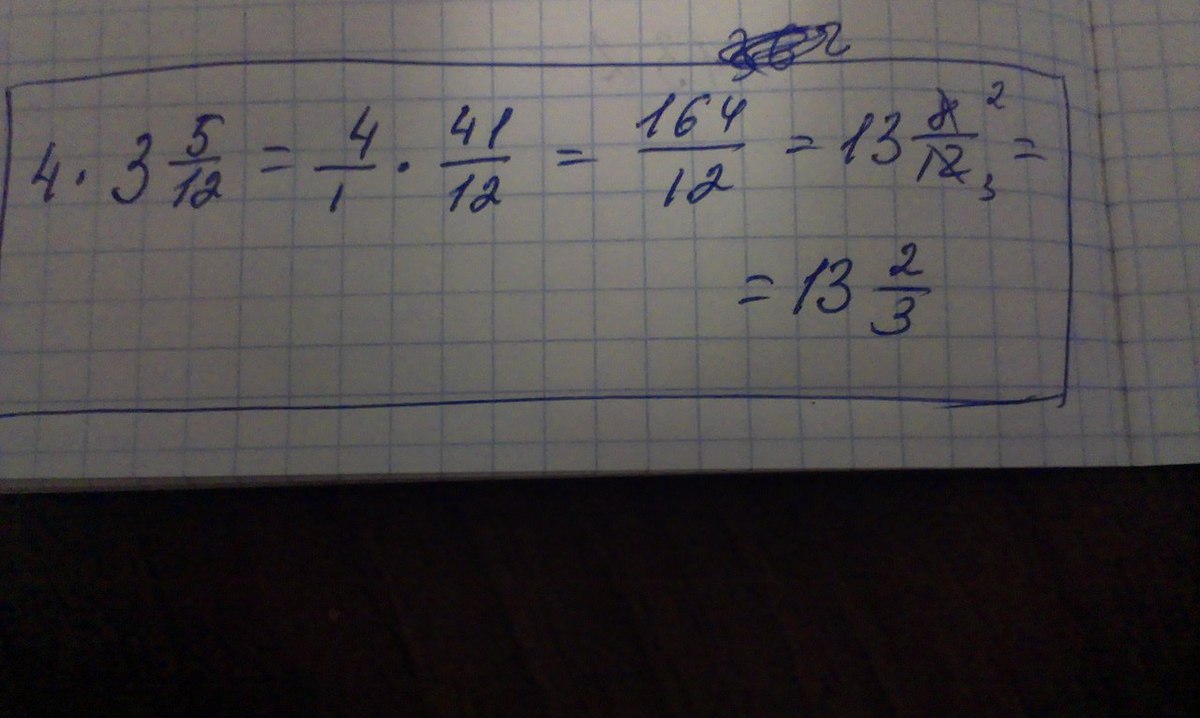 4 · 3 5/12 = 4/1 · 41/12 = 164/12 = 13 8/12 2 3 =
= 13 2/3